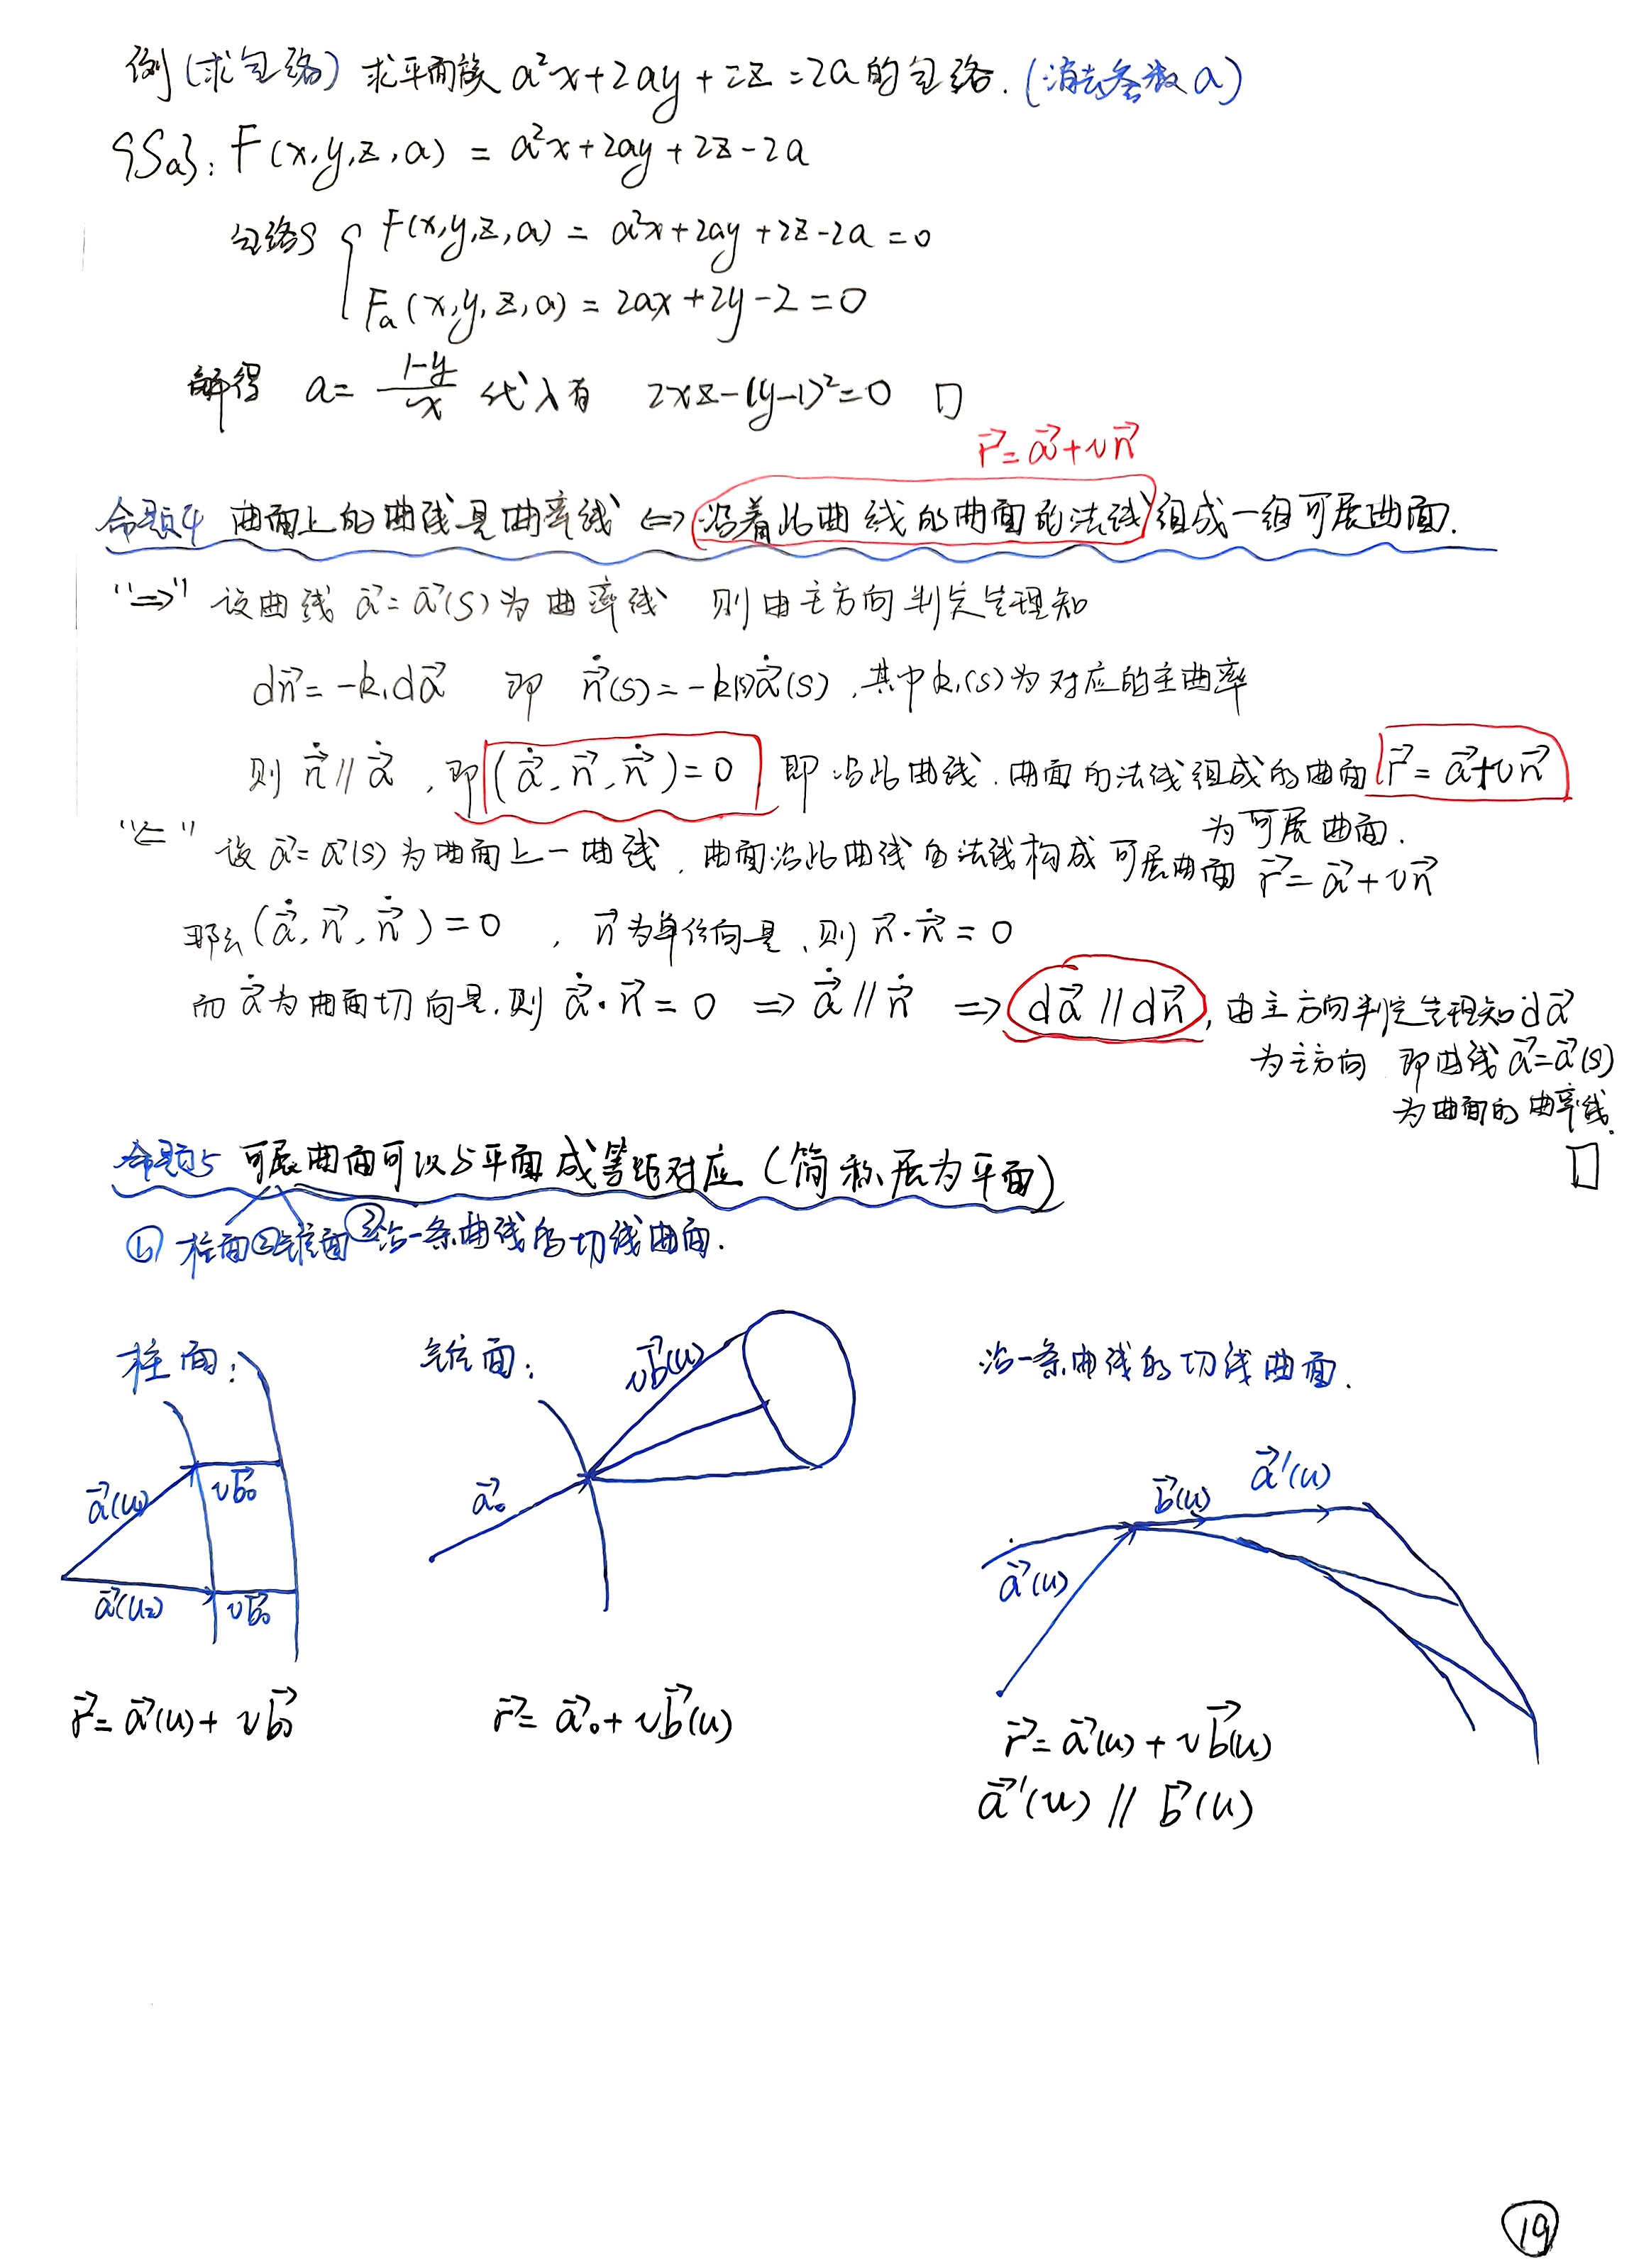 例(求包络) 求平面族 a²x+2ay+2z=2a的包络.(消去参数a)
{Sa}: F(x,y,z,a) = a²x+2ay+2z-2a
包络S { F(x,y,z,a) = a²x+2ay+2z-2a=0
Fa(x,y,z,a) = 2ax+2y-2=0
解得 a= (1-y)/x 代入有 2xz-(y-1)²=0 □
r⃗=a⃗+vn⃗
命题4 曲面上的曲线是曲率线 ⇔ 沿着此曲线的曲面的法线组成一组可展曲面.
"⇒" 设曲线 a⃗=a⃗(s)为曲率线 则由主方向判定定理知
dn⃗=-k₁da⃗ 即 n⃗̇(s)=-k₁(s)a⃗̇(s),其中k₁(s)为对应的主曲率
则 n⃗̇ // a⃗̇ ,即 (a⃗̇, n⃗, n⃗̇)=0 即沿此曲线.曲面的法线组成的曲面 r⃗=a⃗+vn⃗
为可展曲面.
"⇐" 设 a⃗=a⃗(s)为曲面上一曲线,曲面沿此曲线的法线构成可展曲面 r⃗=a⃗+vn⃗
那么 (a⃗̇, n⃗, n⃗̇)=0 , n⃗为单位向量,则 n⃗·n⃗̇=0
而 a⃗̇为曲面切向量.则 a⃗̇·n⃗=0 ⇒ a⃗̇ // n⃗̇ ⇒ da⃗ // dn⃗,由主方向判定定理知da⃗
为主方向 即曲线 a⃗=a⃗(s)
为曲面的曲率线.
□
命题5 可展曲面可以与平面成等距对应(简称展为平面)
① 柱面 ②锥面 ③沿一条曲线的切线曲面.
柱面: 锥面: 沿一条曲线的切线曲面.
vb⃗(u)
a⃗(u₁) vb⃗₀ a⃗₀ b⃗(u) a⃗'(u)
a⃗(u₂) vb⃗₀ a⃗(u)
r⃗=a⃗(u)+vb⃗₀ r⃗=a⃗₀+vb⃗(u) r⃗=a⃗(u)+vb⃗(u)
a⃗'(u) // b⃗(u)
19